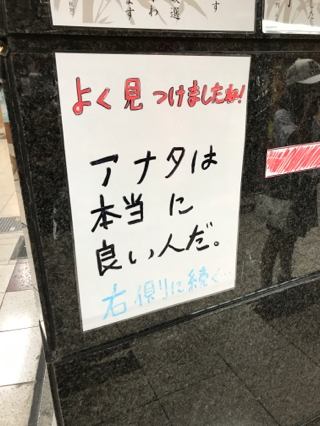 よく見つけましたね!
アナタは
本当に
良い人だ。
右側に続く…